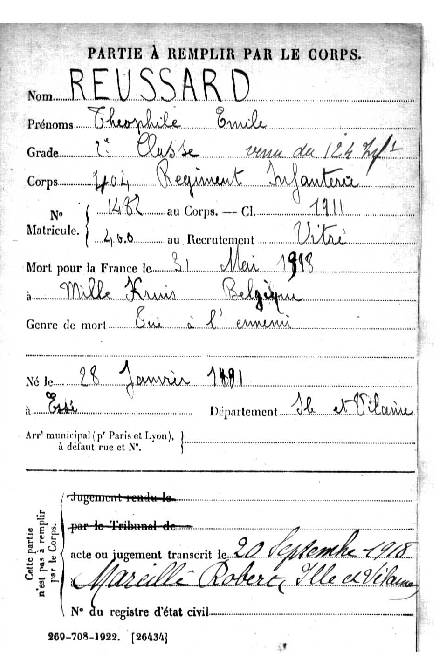 PARTIE À REMPLIR PAR LE CORPS.
Nom REUSSARD
Prénoms Théophile Emile
Grade 2e Classe venu du 124 Inft
Corps 404 Regiment Infanterie
N° Matricule. 1482 au Corps. — Cl. 1911
400 au Recrutement Vitré
Mort pour la France le 31 Mai 1918
à Mille Kruis Belgique
Genre de mort Tué à l'ennemi
Né le 28 Janvier 1891
à Essé Département Ile et Vilaine
Arrt municipal (pr Paris et Lyon), à défaut rue et N°.
Cette partie n'est pas à remplir par le Corps.
Jugement rendu le
par le Tribunal de
acte ou jugement transcrit le 20 Septembre 1918
à Marcillé Robert, Ille et Vilaine
N° du registre d'état civil
269-708-1922. [26434]